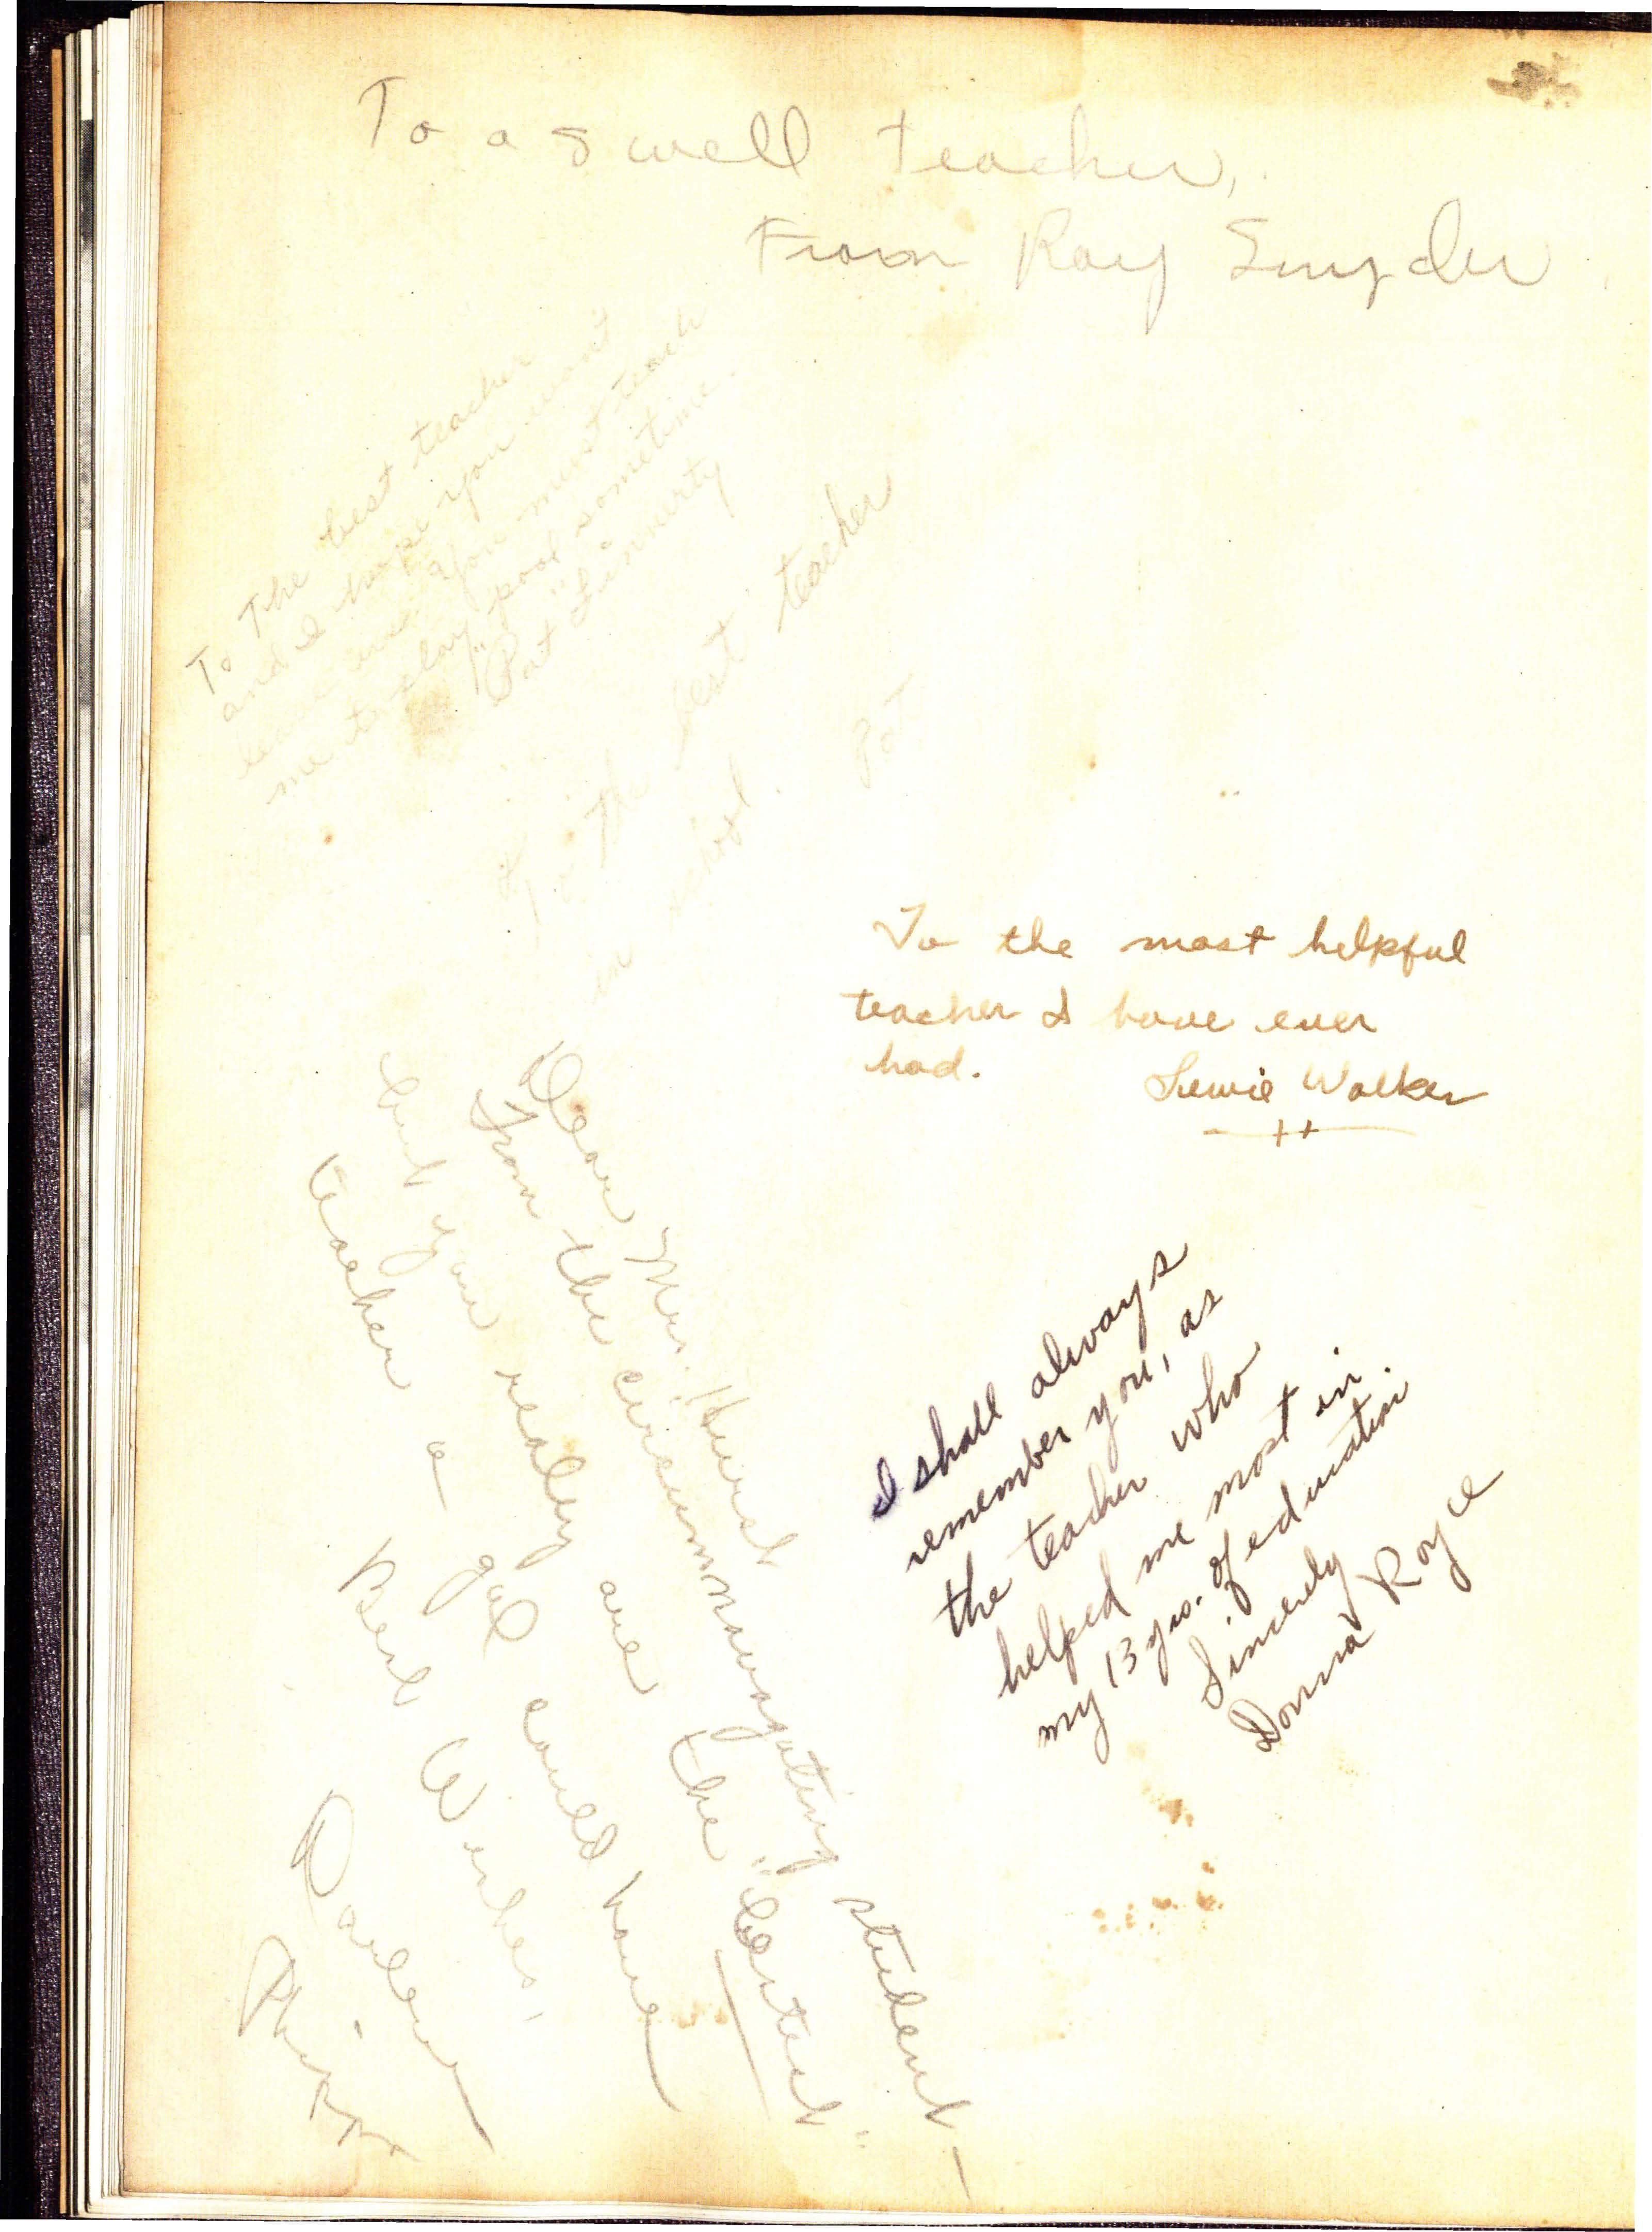 To a swell teacher,
From Ray Snyder
To the best teacher
and I hope you want
leave us. You must teach
me to play "pool" sometime.
Pat Finnerty
To the best teacher
in school.
Pat
To the most helpful
teacher I have ever
had.
Lewie Walker
I shall always
remember you, as
the teacher who
helped me most in
my 13 yrs. of education
Sincerely
Donna Royce
Dear Mrs. Hurst
From the student
but you realy are the "bestest"
teacher a gal could have
Best Wishes,
Darlene
Phipps